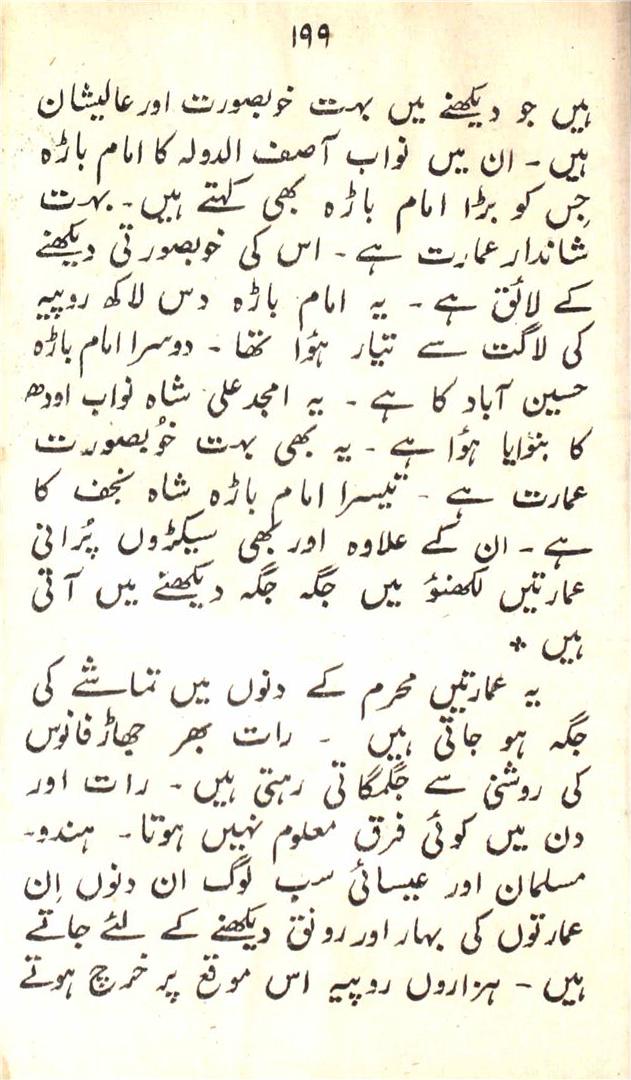 ۱۹۹
ہیں جو دیکھنے میں بہت خوبصورت اور عالیشان
ہیں - ان میں نواب آصف الدولہ کا امام باڑہ
جِس کو بڑا امام باڑہ بھی کہتے ہیں - بہت
شاندار عمارت ہے - اس کی خوبصورتی دیکھنے
کے لائق ہے - یہ امام باڑہ دس لاکھ روپیہ
کی لاگت سے تیار ہؤا تھا - دوسرا امام باڑہ
حسین آباد کا ہے - یہ امجد علی شاہ نواب اودھ
کا بنوایا ہؤا ہے - یہ بھی بہت خُوبصورت
عمارت ہے - تیسرا امام باڑہ شاہ نجف کا
ہے - ان کے علاوہ اور بھی سیکڑوں پُرانی
عمارتیں لکھنؤ میں جگہ جگہ دیکھنے میں آتی
ہیں *
یہ عمارتیں محرم کے دنوں میں تماشے کی
جگہ ہو جاتی ہیں - رات بھر جھاڑ فانوس
کی روشنی سے جگمگاتی رہتی ہیں - رات اور
دن میں کوئی فرق معلوم نہیں ہوتا - ہندو-
مسلمان اور عیسائی سب لوگ ان دنوں اِن
عمارتوں کی بہار اور رونق دیکھنے کے لئے جاتے
ہیں - ہزاروں روپیہ اس موقع پر خرچ ہوتے